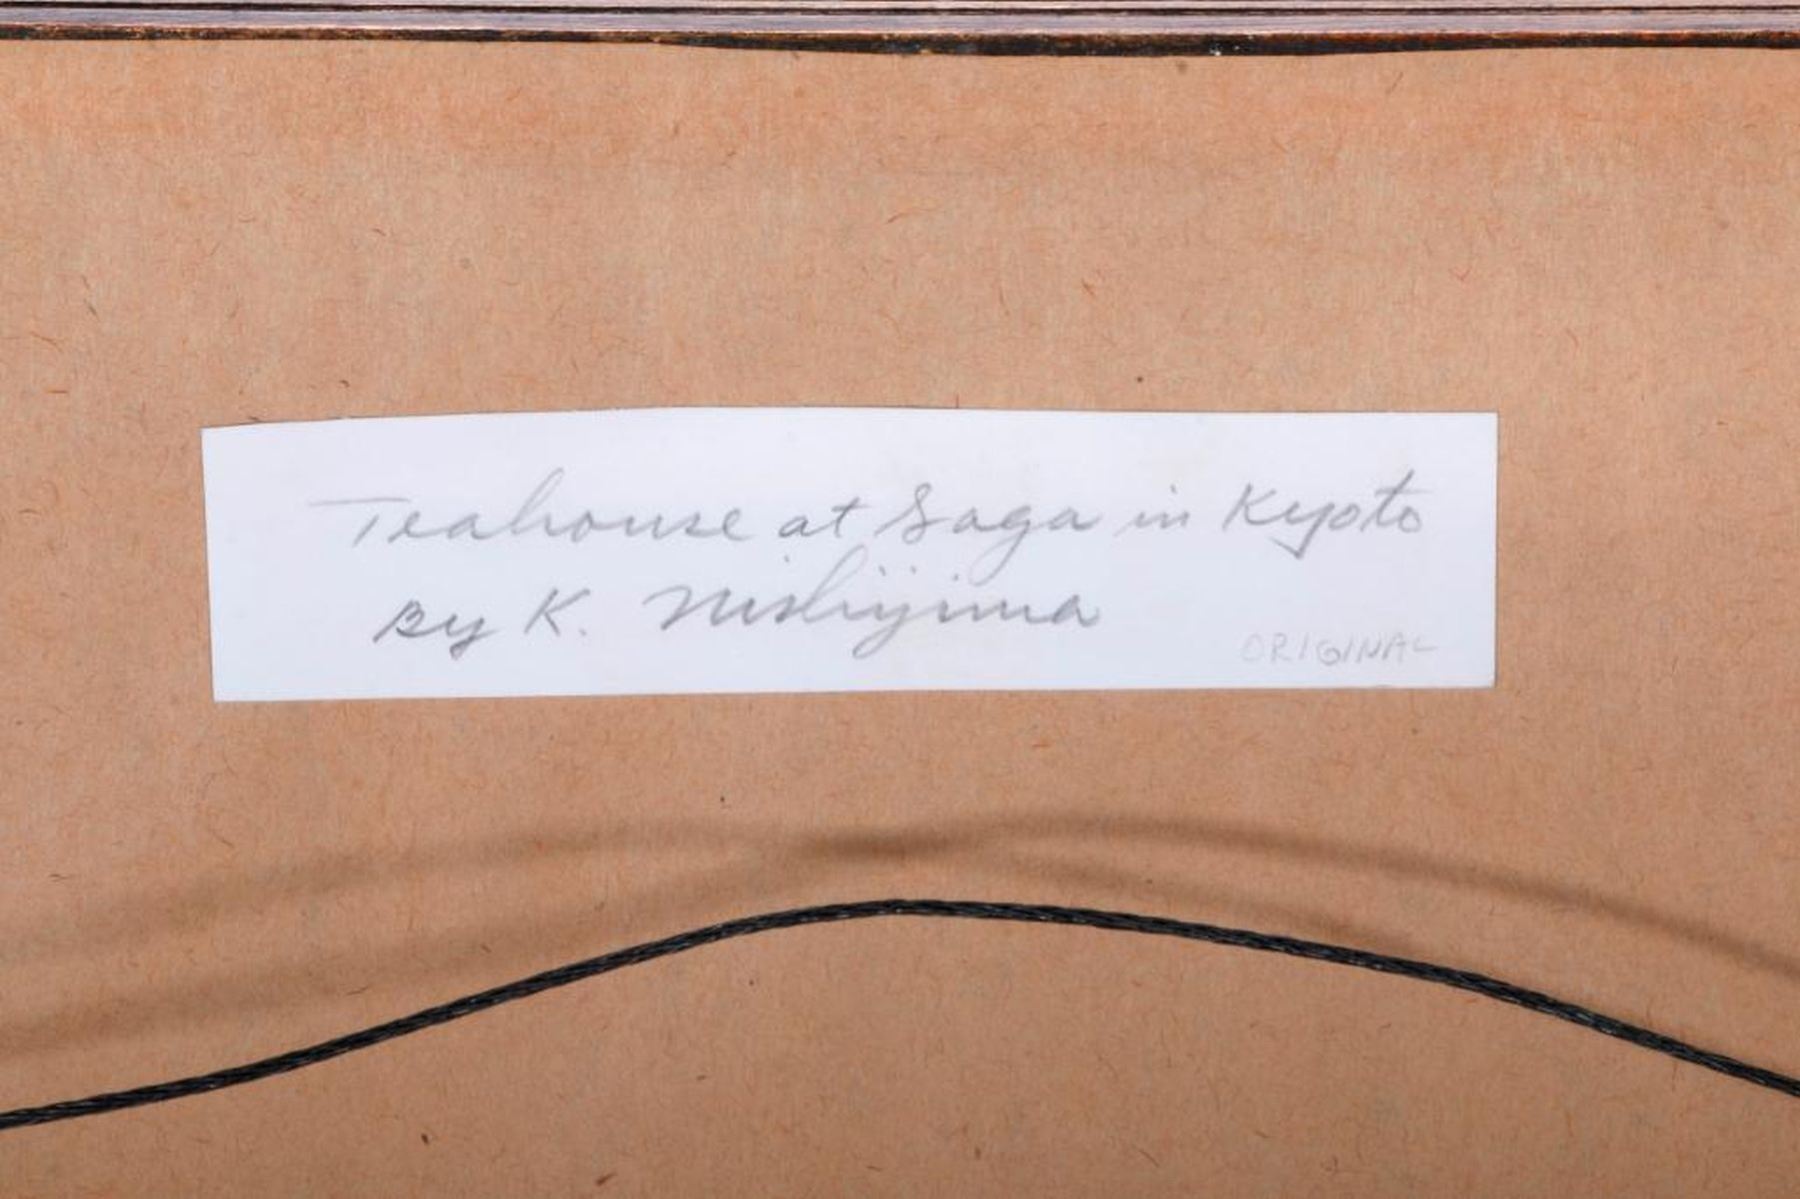 Teahouse at Saga in Kyoto
By K. Nishijima
ORIGINAL